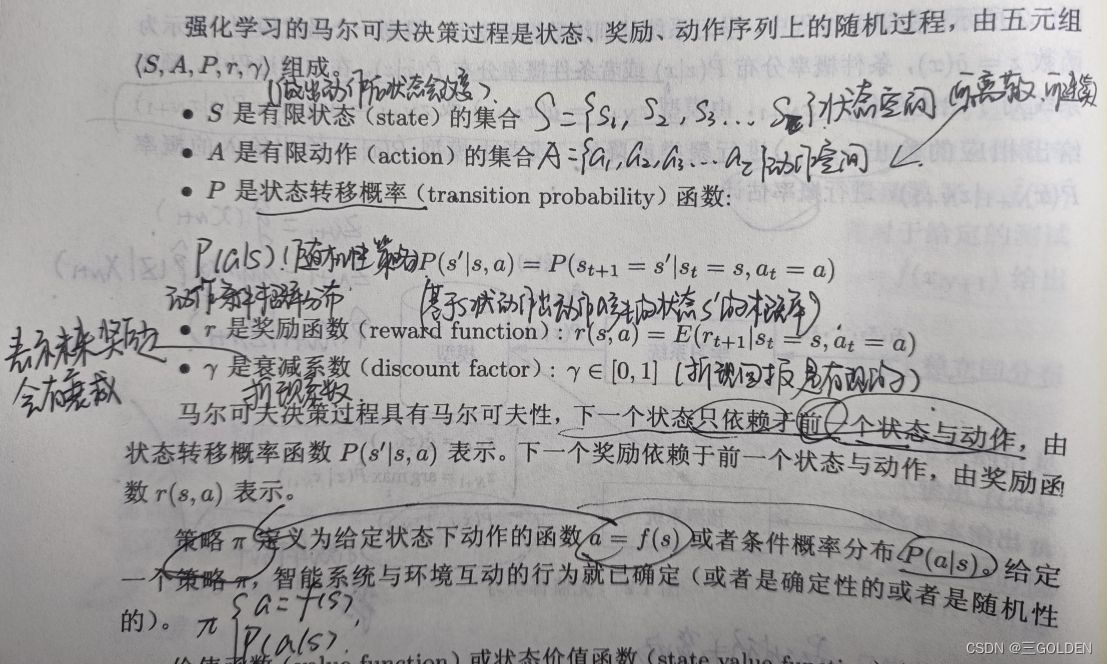 强化学习的马尔可夫决策过程是状态、奖励、动作序列上的随机过程，由五元组
⟨S, A, P, r, γ⟩ 组成。
(做出动作后状态会改变).
• S 是有限状态（state）的集合 S = {s1, s2, s3... s }状态空间 可离散,可连续
• A 是有限动作（action）的集合 A = {a1, a2, a3... a }动作空间
• P 是状态转移概率（transition probability）函数:
P(a|s). (随机性策略)
P(s'|s, a) = P(st+1 = s'|st = s, at = a)
动作条件概率分布
(基于s状态做出动作a产生的状态s'的概率)
• r 是奖励函数（reward function）: r(s, a) = E(rt+1|st = s, at = a)
表示未来奖励
会有衰减
• γ 是衰减系数（discount factor）: γ ∈ [0, 1] (折现回报是有现的)
折现系数
马尔可夫决策过程具有马尔可夫性，下一个状态只依赖于前一个状态与动作，由
状态转移概率函数 P(s'|s, a) 表示。下一个奖励依赖于前一个状态与动作，由奖励函
数 r(s, a) 表示。
策略 π 定义为给定状态下动作的函数 a = f(s) 或者条件概率分布 P(a|s)。给定
一个策略 π，智能系统与环境互动的行为就已确定（或者是确定性的或者是随机性
的）。
π { a = f(s)
P(a|s).
价值函数（value function）或状态价值函数（state value function）
CSDN @三GOLDEN